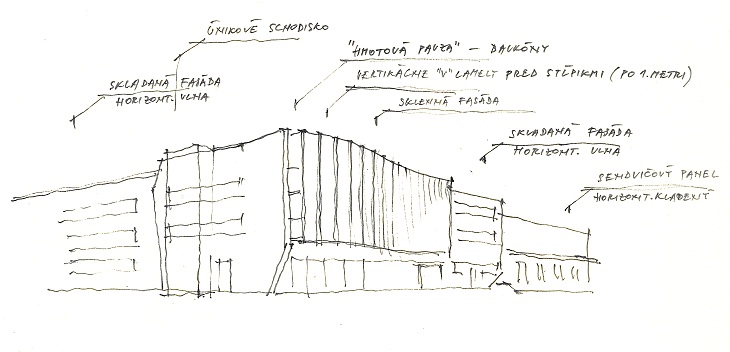 ÚNIKOVÉ SCHODISKO
"HMOTOVÁ PAUZA" – BALKÓNY
SKLADANÁ FASÁDA
HORIZONT. VLNA
VERTIKÁLNE "V" LAMELY PRED STĹPIKMI (PO 1. METRI)
SKLENNÁ FASÁDA
SKLADANÁ FASÁDA
HORIZONT. VLNA
SENDVIČOVÝ PANEL
HORIZONT. KLADENÝ